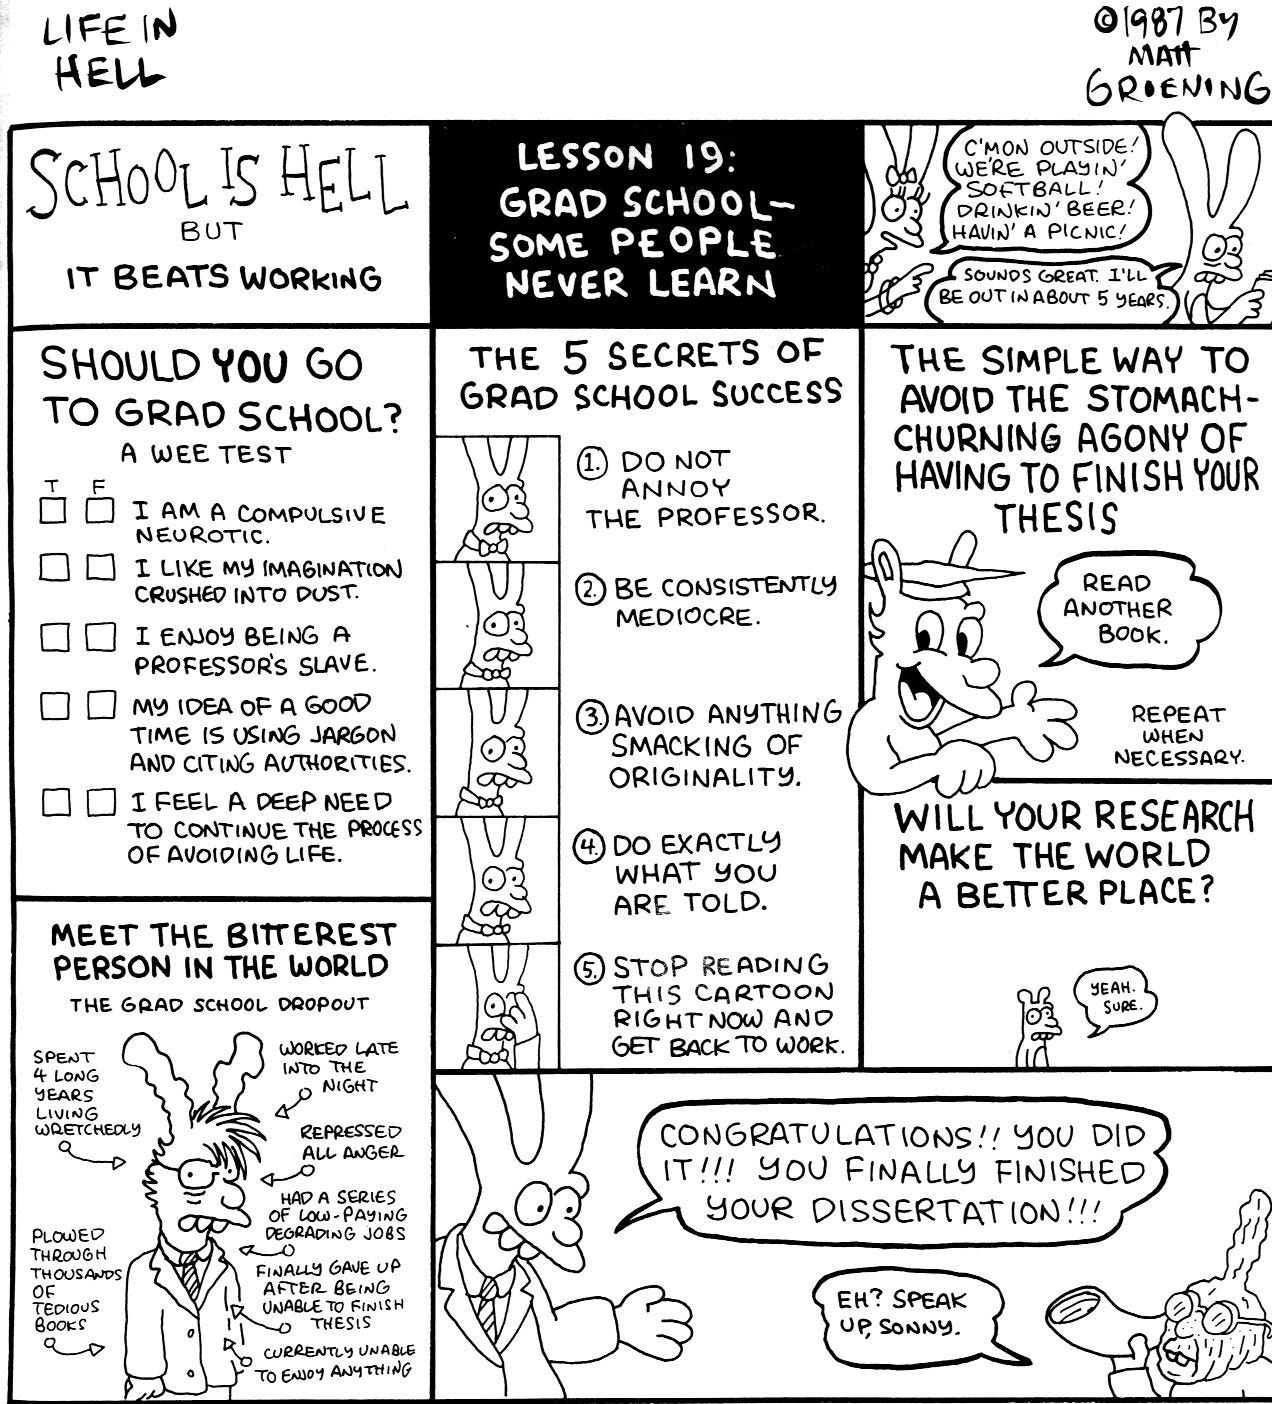 LIFE IN
HELL
©1987 BY
MATT
GROENING
SCHOOL IS HELL
BUT
IT BEATS WORKING
LESSON 19:
GRAD SCHOOL—
SOME PEOPLE
NEVER LEARN
C'MON OUTSIDE!
WE'RE PLAYIN'
SOFTBALL!
DRINKIN' BEER!
HAVIN' A PICNIC!
SOUNDS GREAT. I'LL
BE OUT IN ABOUT 5 YEARS.
SHOULD YOU GO
TO GRAD SCHOOL?
A WEE TEST
T F
I AM A COMPULSIVE
NEUROTIC.
I LIKE MY IMAGINATION
CRUSHED INTO DUST.
I ENJOY BEING A
PROFESSOR'S SLAVE.
MY IDEA OF A GOOD
TIME IS USING JARGON
AND CITING AUTHORITIES.
I FEEL A DEEP NEED
TO CONTINUE THE PROCESS
OF AVOIDING LIFE.
THE 5 SECRETS OF
GRAD SCHOOL SUCCESS
1. DO NOT
ANNOY
THE PROFESSOR.
2. BE CONSISTENTLY
MEDIOCRE.
3. AVOID ANYTHING
SMACKING OF
ORIGINALITY.
4. DO EXACTLY
WHAT YOU
ARE TOLD.
5. STOP READING
THIS CARTOON
RIGHT NOW AND
GET BACK TO WORK.
THE SIMPLE WAY TO
AVOID THE STOMACH-
CHURNING AGONY OF
HAVING TO FINISH YOUR
THESIS
READ
ANOTHER
BOOK.
REPEAT
WHEN
NECESSARY.
WILL YOUR RESEARCH
MAKE THE WORLD
A BETTER PLACE?
YEAH.
SURE.
MEET THE BITTEREST
PERSON IN THE WORLD
THE GRAD SCHOOL DROPOUT
SPENT
4 LONG
YEARS
LIVING
WRETCHEDLY
PLOWED
THROUGH
THOUSANDS
OF
TEDIOUS
BOOKS
WORKED LATE
INTO THE
NIGHT
REPRESSED
ALL ANGER
HAD A SERIES
OF LOW-PAYING
DEGRADING JOBS
FINALLY GAVE UP
AFTER BEING
UNABLE TO FINISH
THESIS
CURRENTLY UNABLE
TO ENJOY ANYTHING
CONGRATULATIONS!! YOU DID
IT!!! YOU FINALLY FINISHED
YOUR DISSERTATION!!!
EH? SPEAK
UP, SONNY.